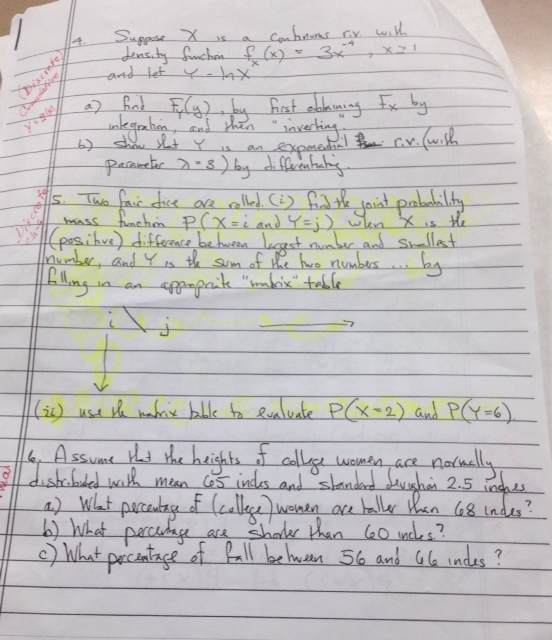 4. Suppose X is a continuous r.v. with
density function fx(x) = 3x⁻⁴, x>1
and let Y = ln X.
(Discrete)
a) find Fy(y), by first obtaining Fx by
integration, and then "inverting".
b) show that Y is an exponential r.v. (with
parameter λ=3) by differentiating.
5. Two fair dice are rolled. (i) find the joint probability
mass function P(X=i and Y=j) when X is the
(positive) difference between largest number and smallest
number, and Y is the sum of the two numbers ... by
filling in an appropriate "matrix" table
i \ j
(ii) use the matrix table to evaluate P(X=2) and P(Y=6)
6. Assume that the heights of college women are normally
distributed with mean 65 inches and standard deviation 2.5 inches
a) What percentage of (college) women are taller than 68 inches?
b) What percentage are shorter than 60 inches?
c) What percentage of fall between 56 and 66 inches?